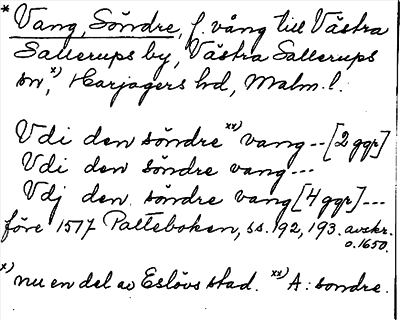 * Vang, Söndre, f. vång till Västra
Sallerups by, Västra Sallerups
sn,x) Harjagers hd, Malm. l.
Vdi den söndre xx) vang -- [2 ggr]
Vdi den söndre vang ---
Vdj den söndre vang [4 ggr] ---
före 1517 Palteboken, ss. 192, 193. avskr.
o. 1650.
x) nu en del av Eslövs stad. xx) A: sondre.